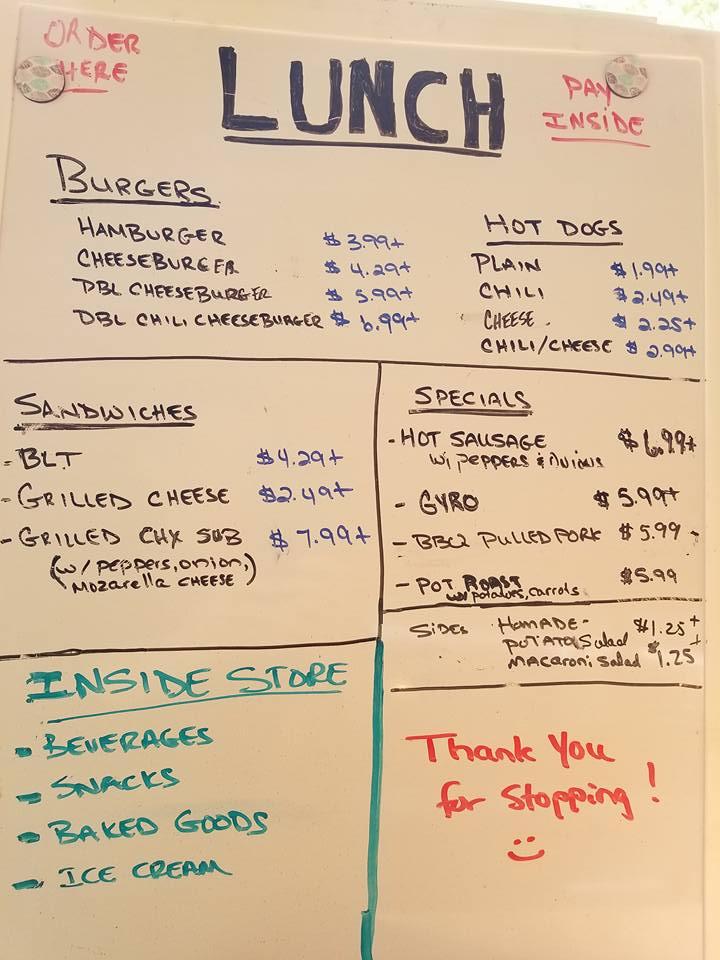 ORDER
HERE
LUNCH
PAY
INSIDE
BURGERS
HAMBURGER $3.99+
CHEESEBURGER $4.29+
DBL CHEESEBURGER $5.99+
DBL CHILI CHEESEBURGER $6.99+
HOT DOGS
PLAIN $1.99+
CHILI $2.49+
CHEESE. $2.25+
CHILI/CHEESE $2.99+
SANDWICHES
- BLT $4.29+
- GRILLED CHEESE $2.49+
- GRILLED CHX SUB $7.99+
(w/ PEPPERS, ONION,
MOZARELLA CHEESE)
SPECIALS
- HOT SAUSAGE $6.99+
w/ PEPPERS & ONIONS
- GYRO $5.99+
- BBQ PULLED PORK $5.99 -
- POT ROAST $5.99
w/ potatoes, carrots
SIDES HOMADE- $1.25+
POTATO Salad +
MACARONi Salad $1.25
INSIDE STORE
- BEVERAGES
- SNACKS
- BAKED GOODS
- ICE CREAM
Thank You
for Stopping!